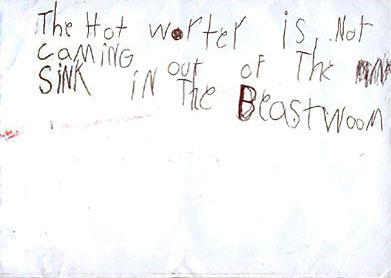 The Hot worter is Not
caming out of The
SINK IN The Beastwoom